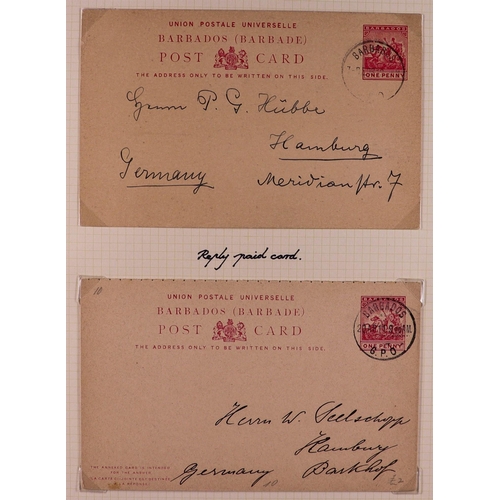 UNION POSTALE UNIVERSELLE
BARBADOS (BARBADE)
POST CARD
THE ADDRESS ONLY TO BE WRITTEN ON THIS SIDE.
BARBADOS
ONE PENNY
BARBADOS
Herrn P. G. Hübbe
Hamburg
Germany
Meridianstr. 7
Reply paid card.
10
UNION POSTALE UNIVERSELLE
BARBADOS (BARBADE)
POST CARD
THE ADDRESS ONLY TO BE WRITTEN ON THIS SIDE.
BARBADOS
G.P.O
ONE PENNY
Herrn W. Seelschopp
Hamburg
Germany Barkhof
THE ANNEXED CARD IS INTENDED
FOR THE ANSWER
LA CARTE CI-JOINTE EST DESTINÉE
À LA RÉPONSE
10
£2